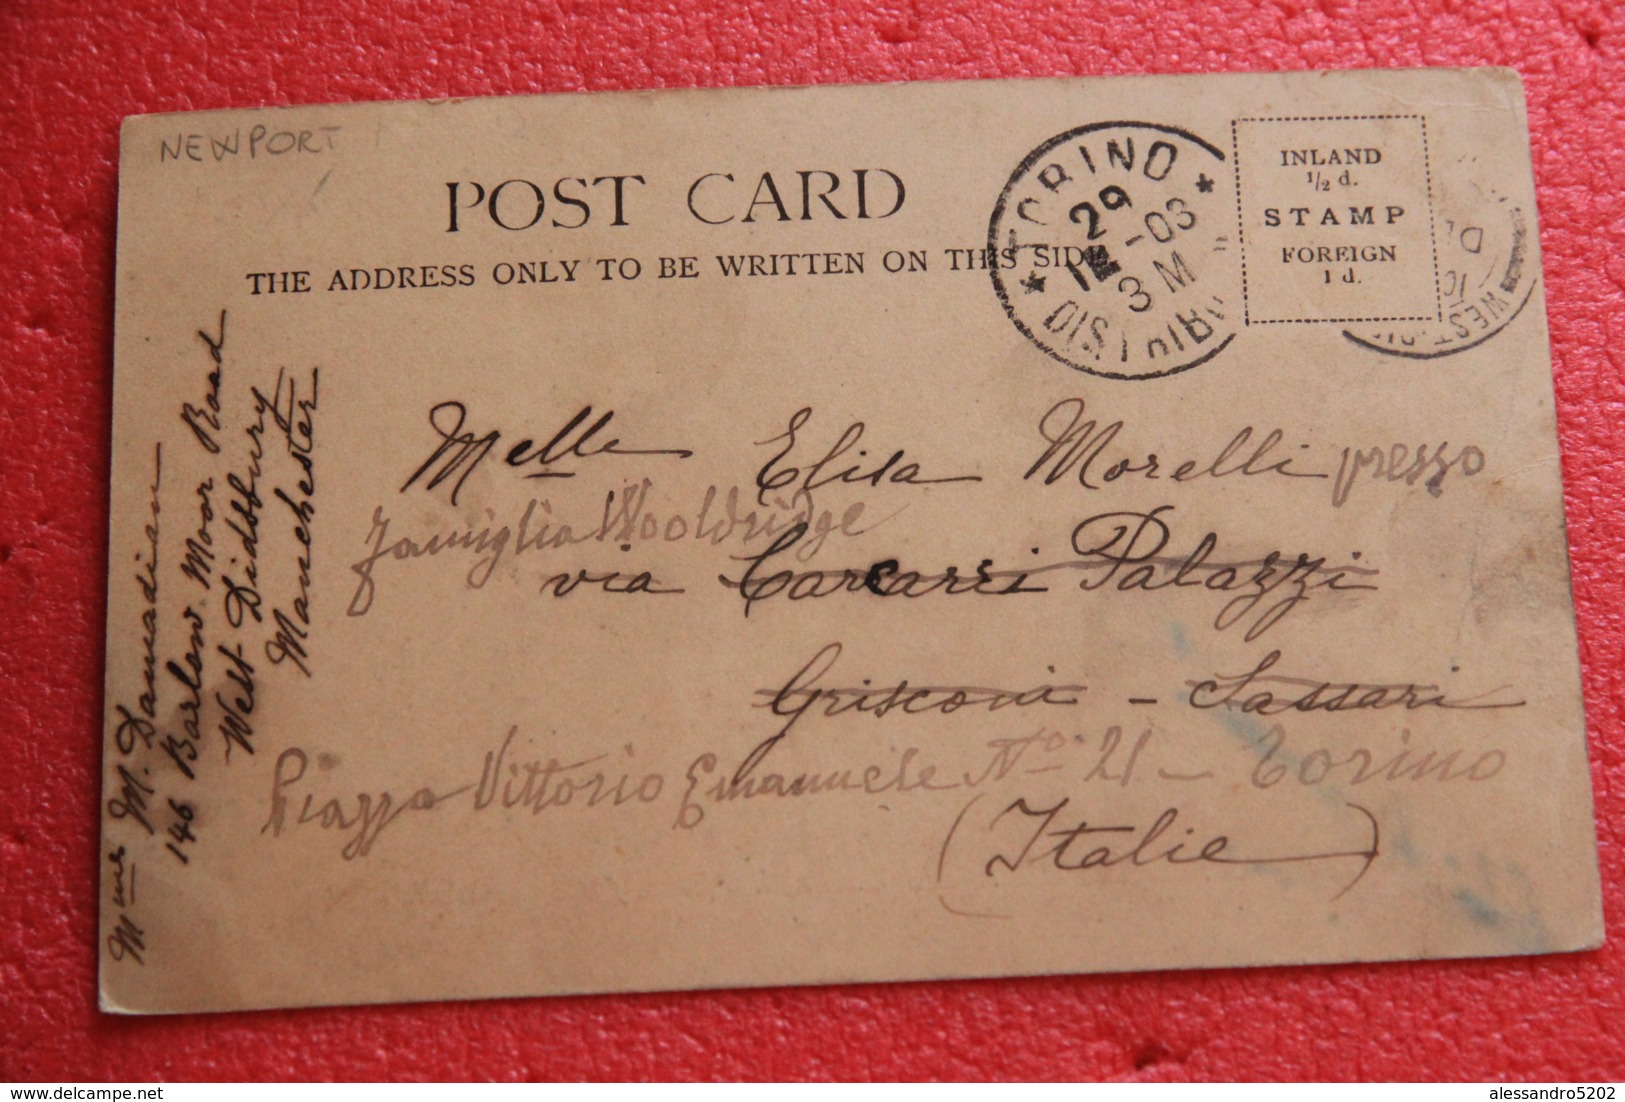 NEWPORT
POST CARD
THE ADDRESS ONLY TO BE WRITTEN ON THIS SIDE.
TORINO
29
12-03
3 M
INLAND
1/2 d.
STAMP
FOREIGN
1 d.
WEST
Melle Elisa Morelli presso
famiglia Wooldridge
via Carcassi Palazzi
Grisconi - Sassari
Piazza Vittorio Emanuele No 21 - Torino
(Italie)
Mme M. Damadian
146 Barlow Moor Road
West Didsbury
Manchester
delcampe.net
alessandro5202